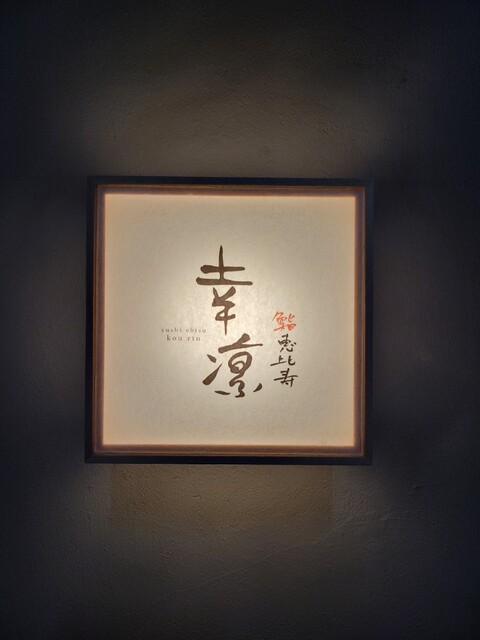 幸凛
鮨
恵比寿
sushi ebisu
kou rin